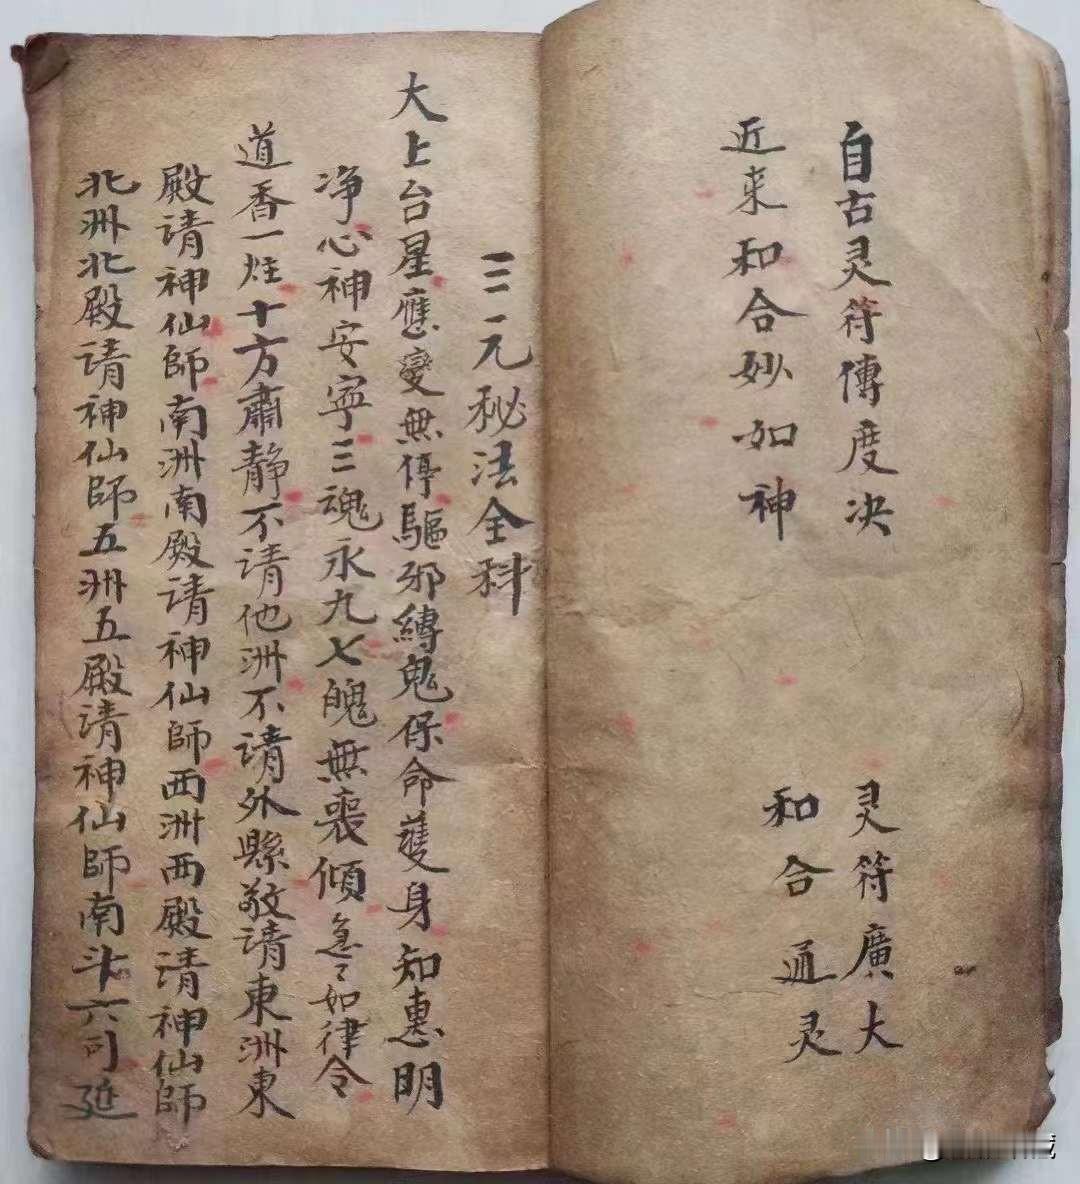 自古灵符傳度决
灵符廣大
近来和合妙如神
和合通灵
三元秘法全科
大上台星應變無停驅邪縛鬼保命護身知惠明
净心神安寧三魂永九七魄無喪傾急々如律令
道香一炷十方肅静不请他洲不请外縣敬请東洲東
殿请神仙師南洲南殿请神仙師西洲西殿请神仙師
北洲北殿请神仙師五洲五殿请神仙師南斗六司延